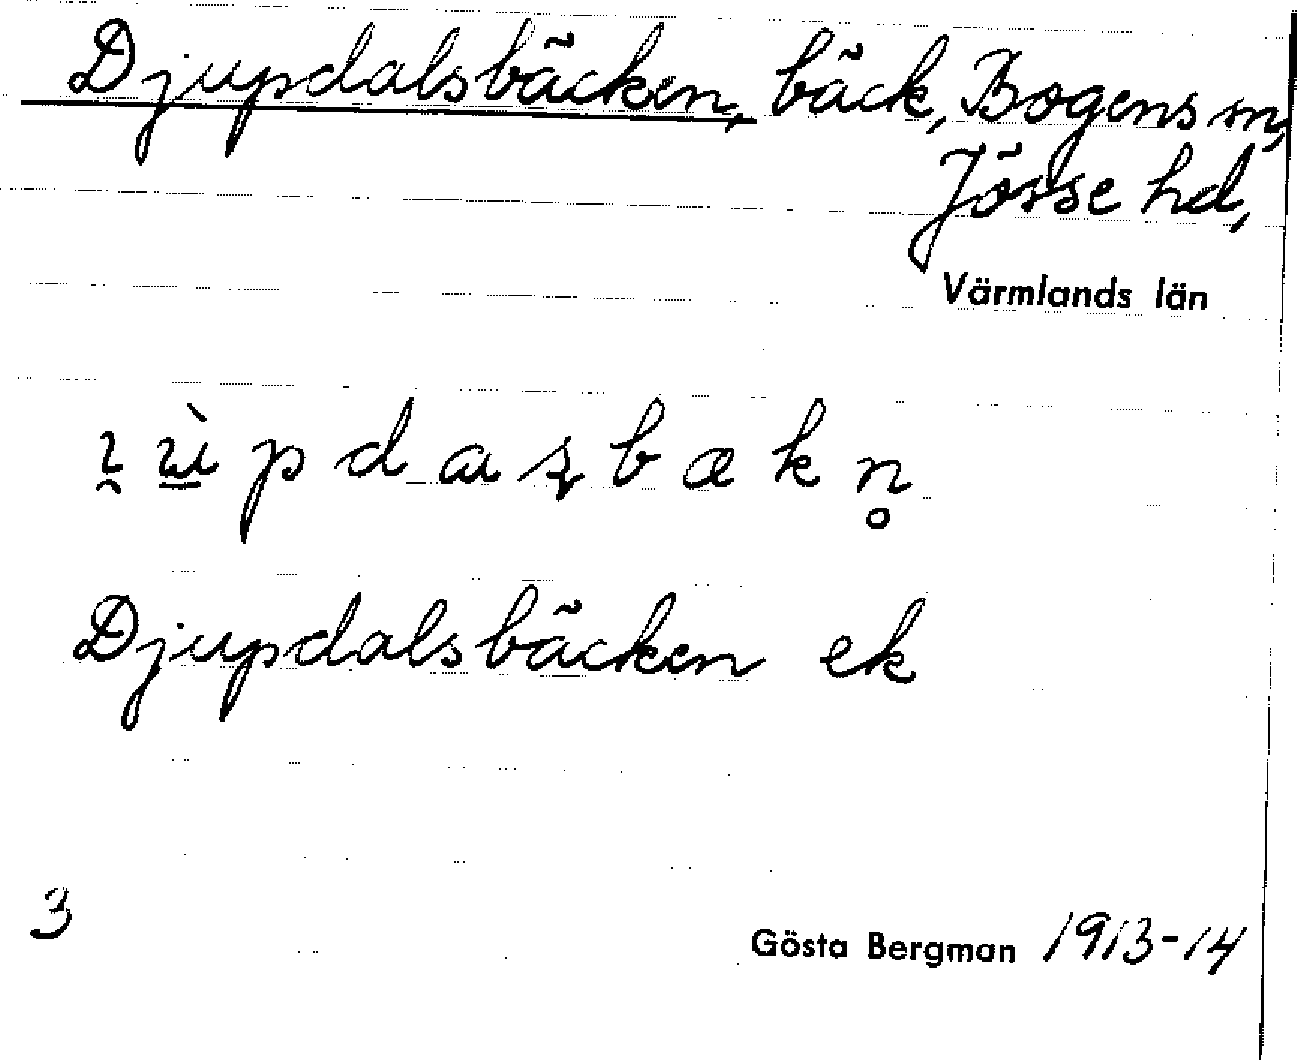 Djupdalsbäcken, bäck, Bogens sn,
Jösse hd,
Värmlands län
Djupdalsbäcken ek
3
Gösta Bergman 1913-14